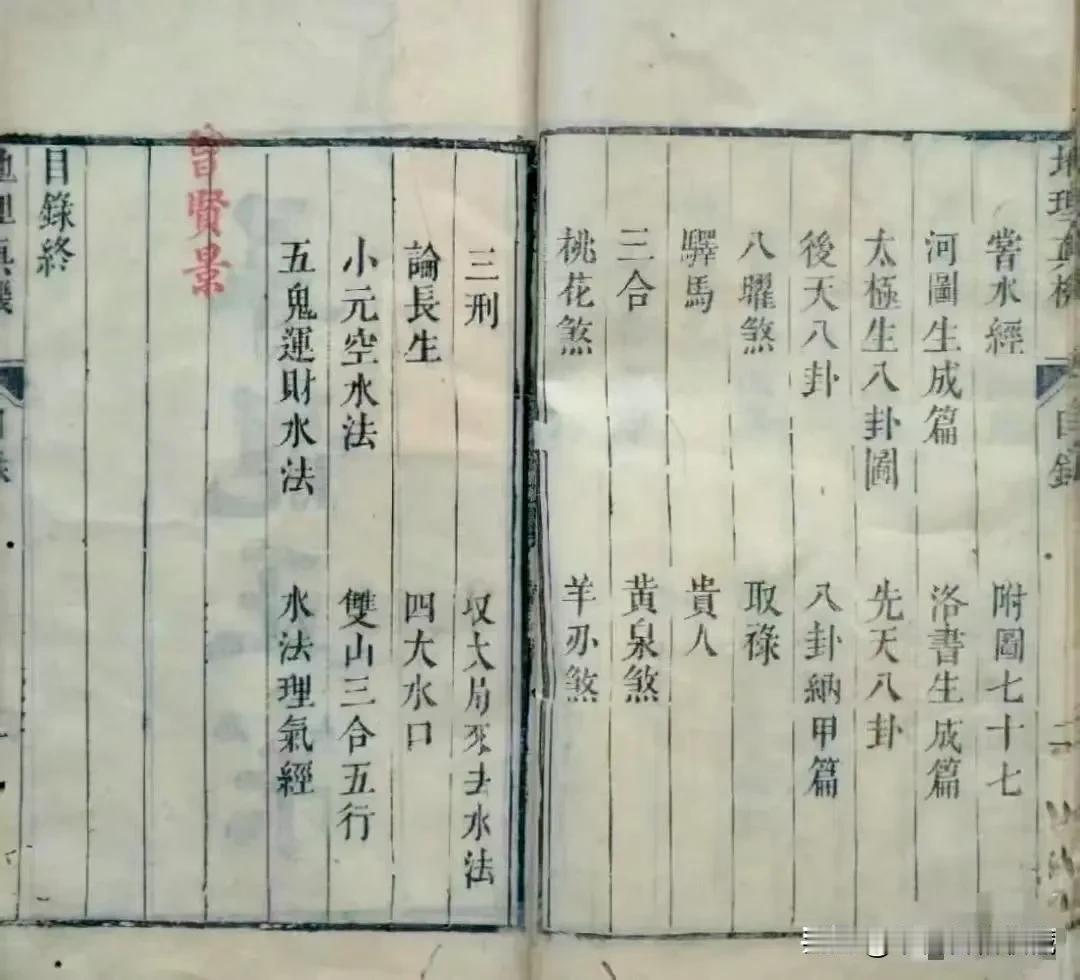 地理真機 目錄
嘗水經 附圖七十七
河圖生成篇 洛書生成篇
太極生八卦圖 先天八卦
後天八卦 八卦納甲篇
八曜煞 取祿
驛馬 貴人
三合 黃泉煞
桃花煞 羊刃煞
三刑 収大局死去水法
論長生 四大水口
小元空水法 雙山三合五行
五鬼運財水法 水法理氣經
賢景
目錄終
地理真機 目錄